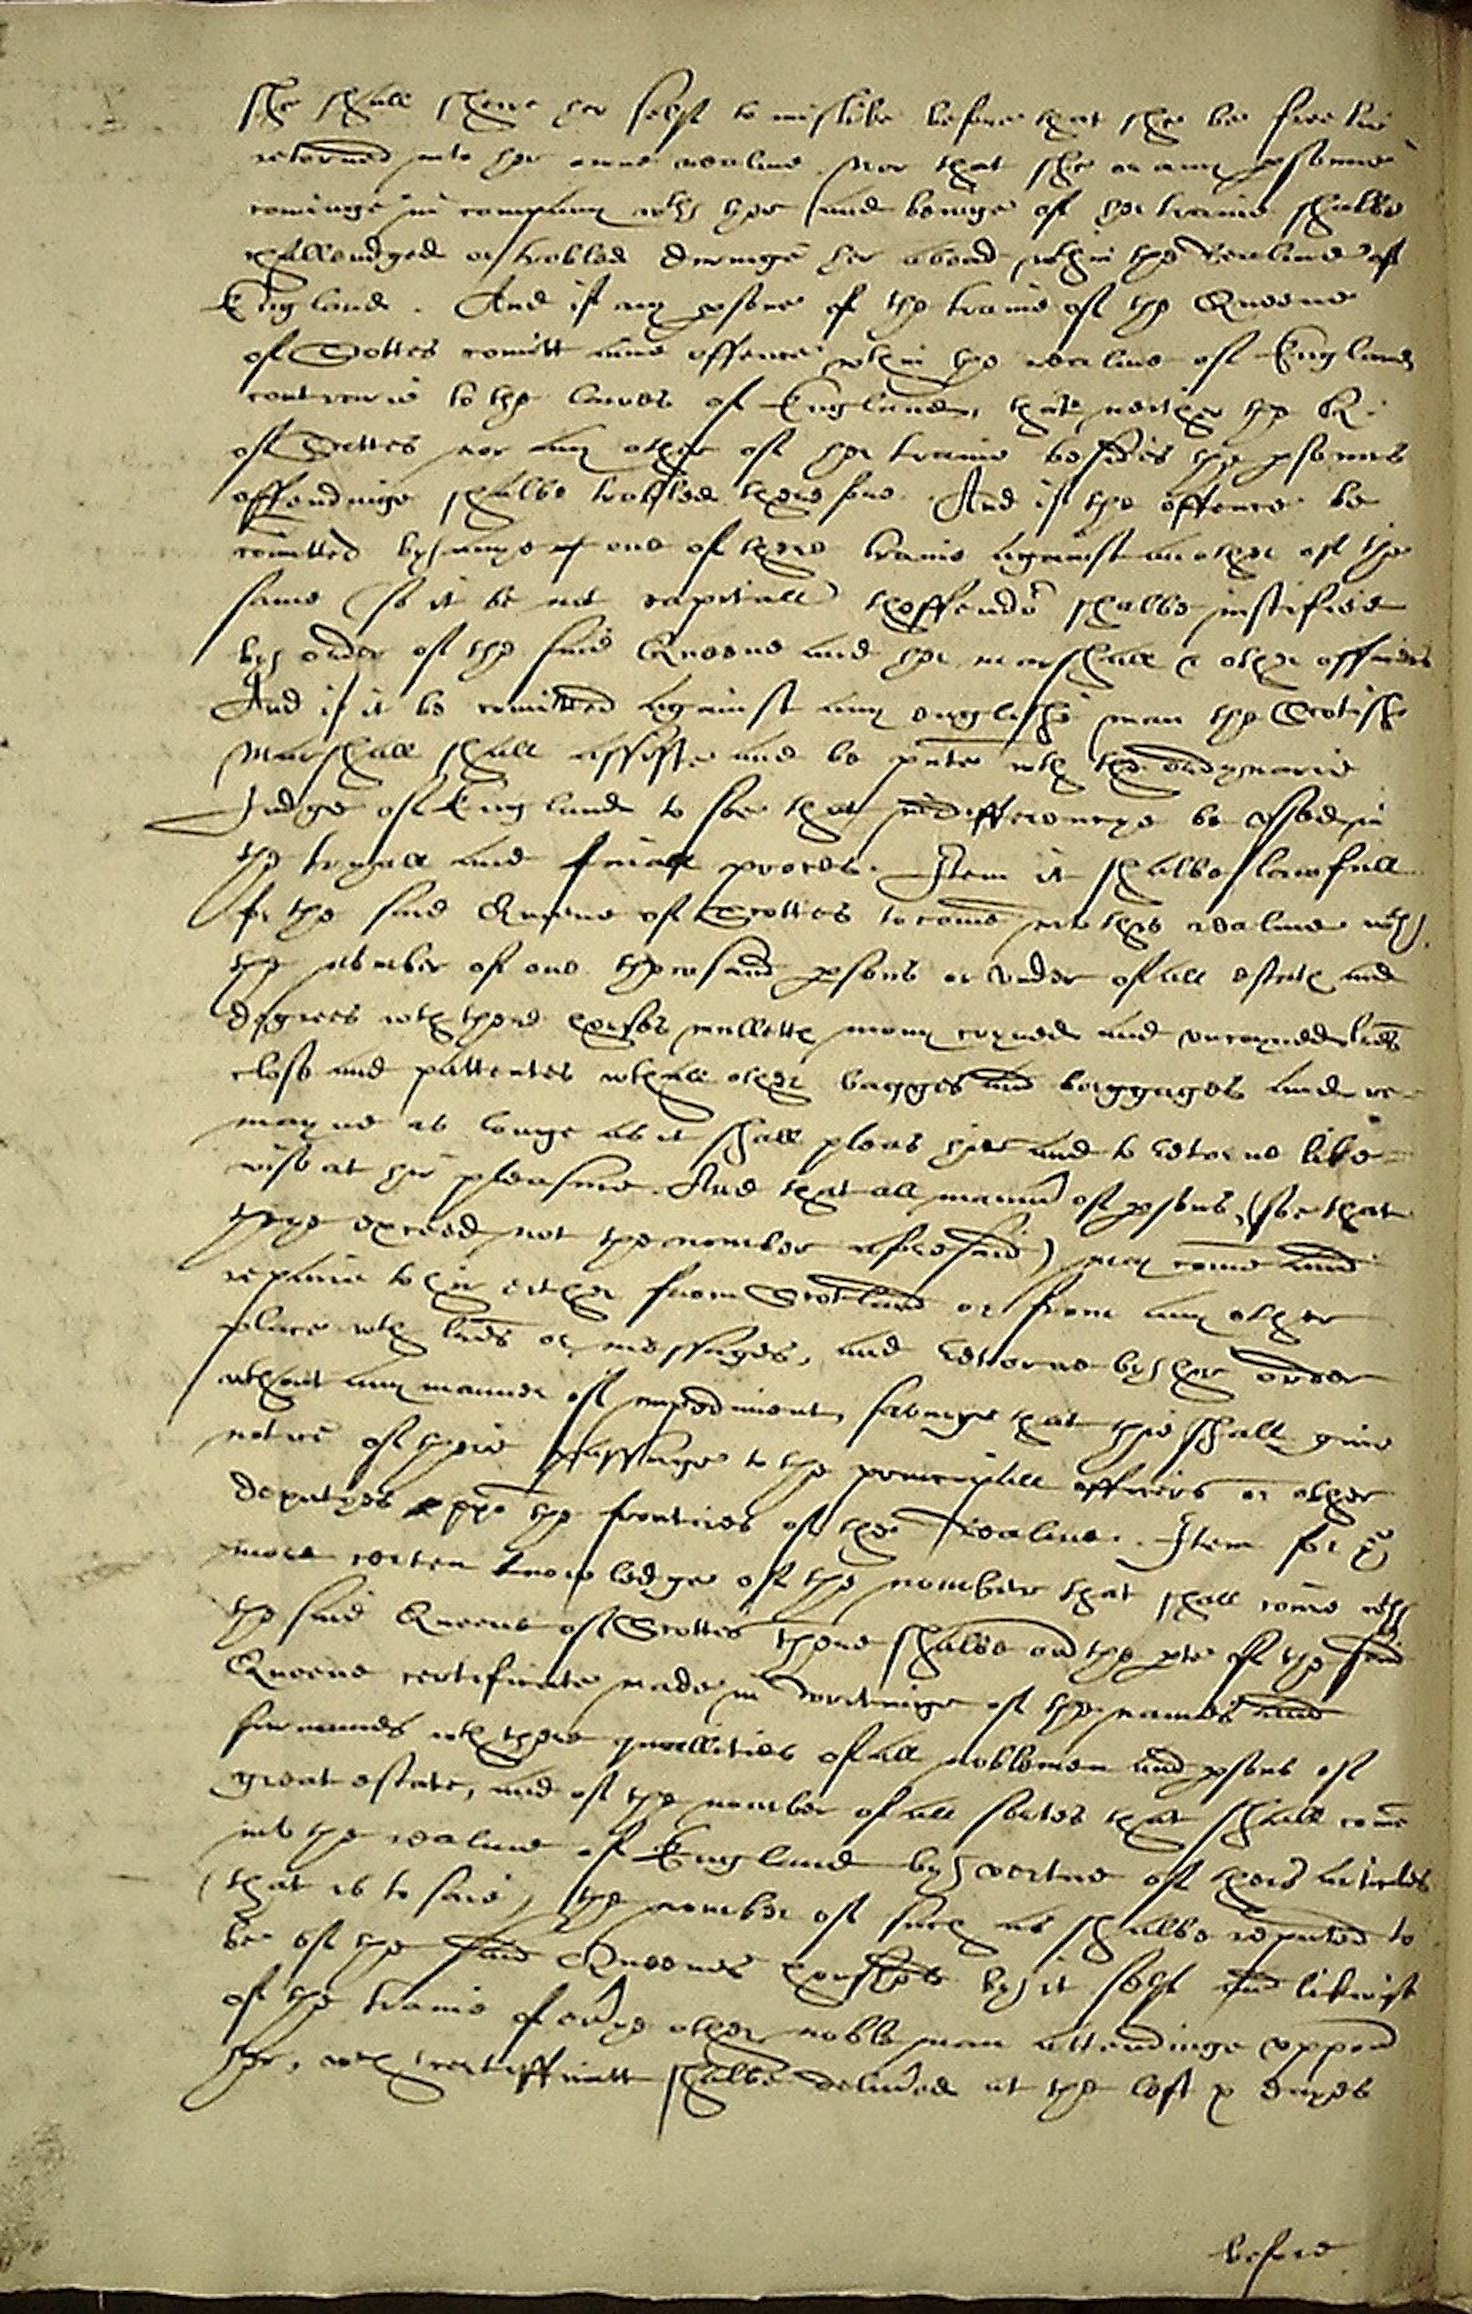 she shall shewe her self to mislike before that she be freelie
retorned into her owne realme. Nor that she or any psonne
cominge in company wth her and beinge of her traine shalbe
challendged or trobled duringe her aboad wthin the Realme of
England. And if any psone of the traine of the Queene
of Scottes comitt anie offence wthin the realme of England
contrarie to the lawes of England, that neither the Q.
of Scottes nor any other of her traine besides the psonnes
offendinge shalbe trobled therefore. And if the offence be
comitted by anye of one of there traine against another of the
same (so it be not capitall) thoffendor shalbe justified
by order of the said Queene and her marshall & other officers
And if it be comitted against any englishe man the Scotishe
Marshall shall assiste and be pnte wth the ordynarie
Judge of England to see that indifferencye be vsed in
the tryall and finall proces. Item it shalbe lawfull
for the said Queene of Scottes to come into this realme wth
the nomber of one thowsand psons or vnder of all estats and
degrees wth there horses mulletts mony coyned and vncoyned lres
close and pattentes wth all other bagges and baggages and re=
mayne as longe as it shall pleas her and to retorne like=
wise at her pleasure. And that all manner of psons (soe that
they exceed not the nomber aforesaid) may come and
repaire to her either from Scotland or from any other
place wth lres or messages, and retorne by her order
wthout any manner of impediment, savinge that they shall give
notice of their passage to the principall officers or other
deputyes vppon the frontiers of the Realme. Item for ye
more certen knowledge of the nomber that shall come wth
the said Queene of Scottes there shalbe on the pte of the said
Queene certificate made in writinge of the names and
surnames wth there quallities of all noblemen and psons of
great estate, and of the nomber of all sortes that shall come
into the realme of England by vertue of theis articles
(that is to saie) the nomber of such as shalbe reputed to
be of the said Queenes housholde by it self and likewise
of the traine of everye other noble man attendinge vppon
her, wch certifficatt shalbe delivred at the lest x dayes
before